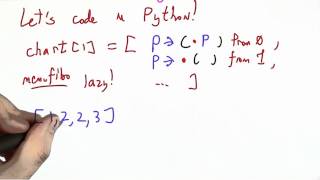 Let's code in Python!
chart[1] = [ P → (• P ) from 0 ,
P → • ( P ) from 1 ,
memofibo lazy! ... ]
[1,2,2,3]